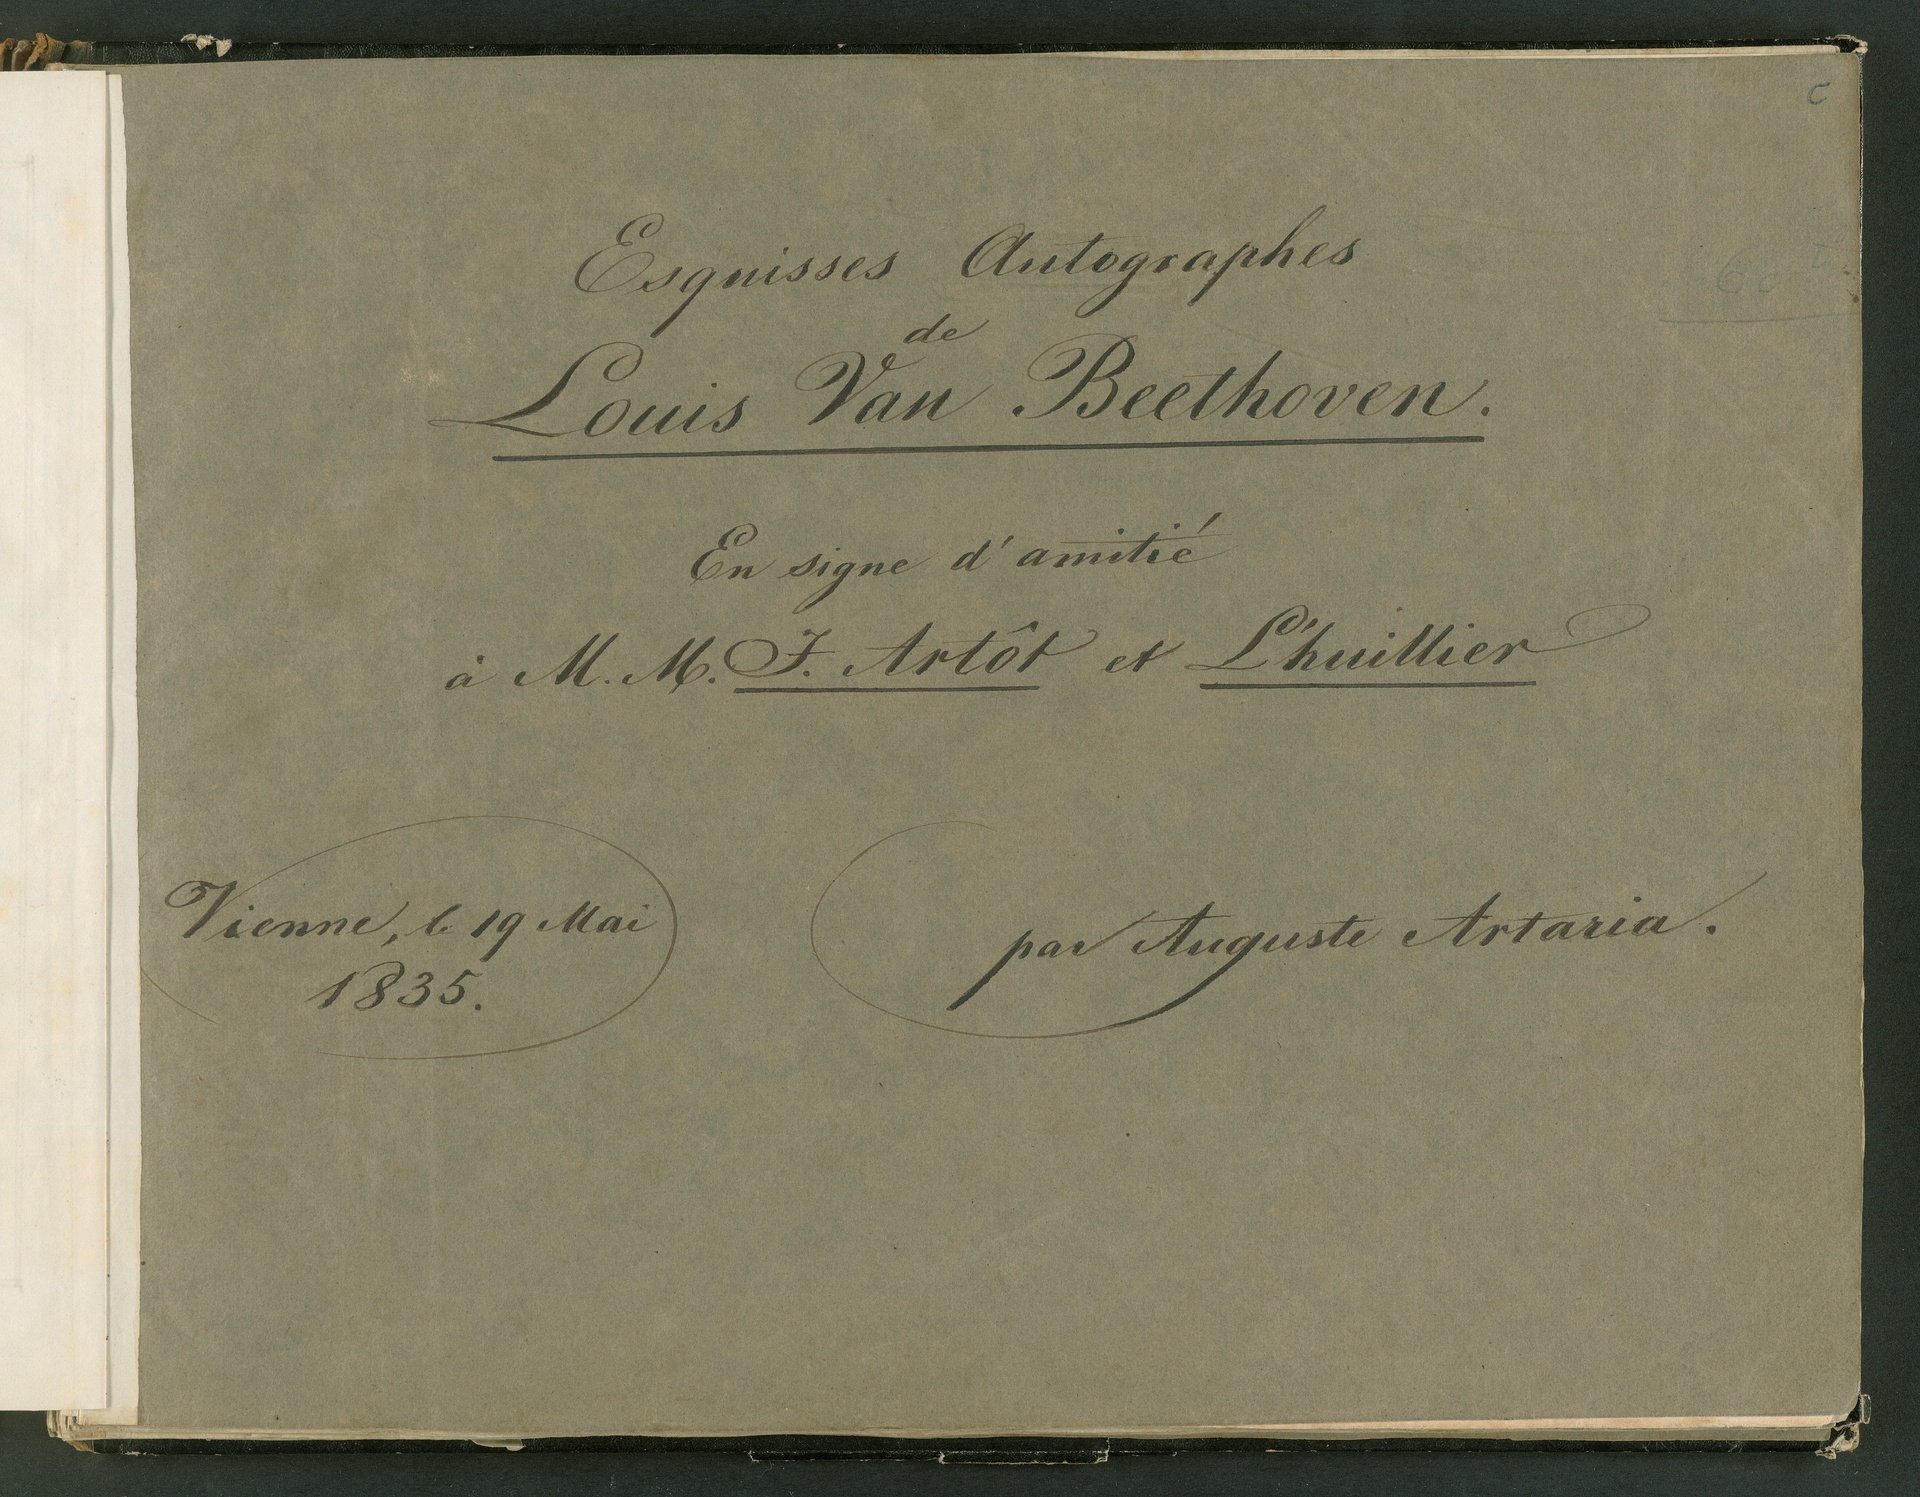 C
Esquisses Autographes
de
Louis Van Beethoven.
En signe d'amitié
à M. M. J. Artôt et L'huillier
Vienne, le 19 Mai
1835.
par Auguste Artaria.